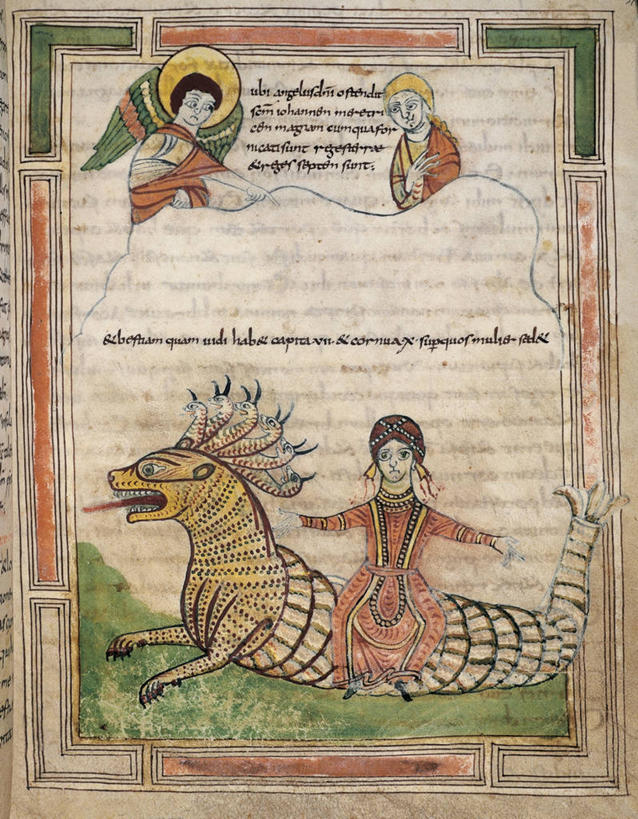 ubi angelus dn̄i ostendit
scm̄ iohannem meretri
cem magnam cum qua for
nicati sunt reges terrae
& reges septem sunt:
& bestiam quam uidi hab& capita·vii· & cornua·x· sup̄ quos mulier sed&